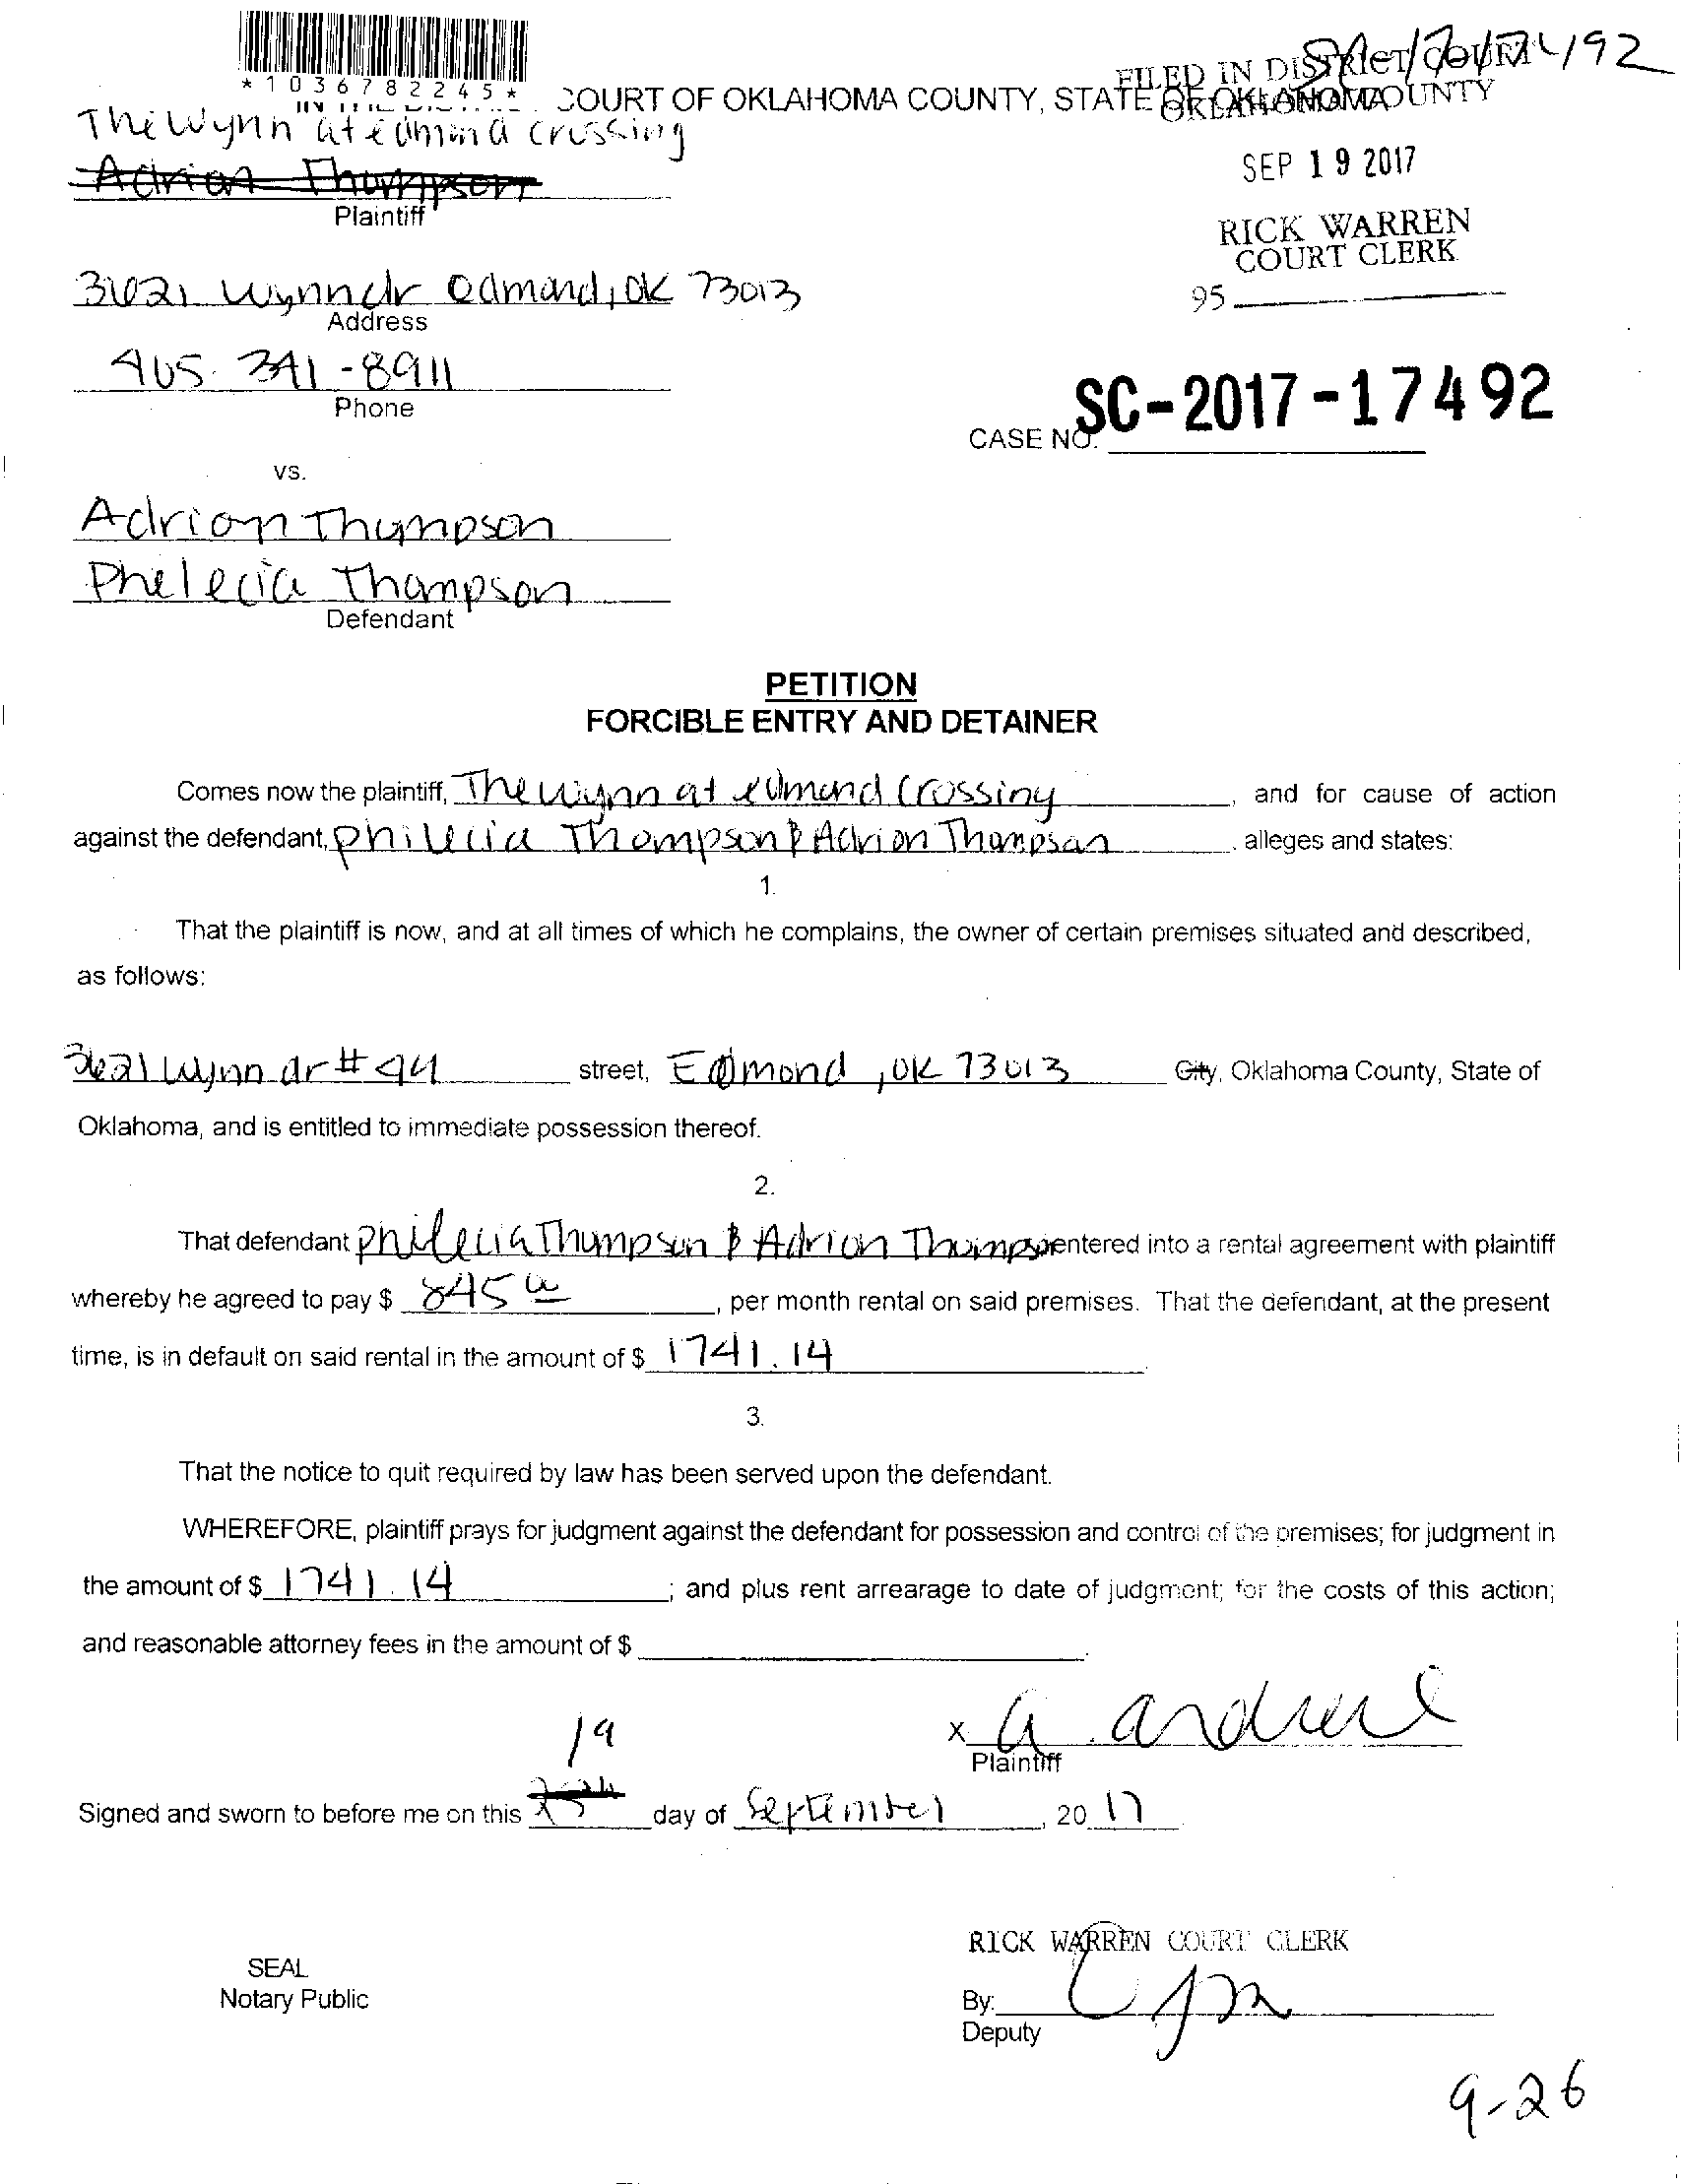 *1036782245*
FILED IN DISTRICT COURT
OKLAHOMA COUNTY
COURT OF OKLAHOMA COUNTY, STATE OF OKLAHOMA
The Wynn at edmond crossing
Adrian Thompson
Plaintiff
SEP 19 2017
RICK WARREN
COURT CLERK
95
3621 Wynn dr edmond, OK 73013
Address
405-341-8911
Phone
CASE NO. SC-2017-17492
vs.
Adrion Thompson
Phelecia Thompson
Defendant
PETITION
FORCIBLE ENTRY AND DETAINER
Comes now the plaintiff, The Wynn at edmond Crossing, and for cause of action
against the defendant, philecia Thompson & Adrion Thompson alleges and states:
1.
That the plaintiff is now, and at all times of which he complains, the owner of certain premises situated and described,
as follows:
3621 Wynn dr # 94 street, Edmond, OK 73013 City, Oklahoma County, State of
Oklahoma, and is entitled to immediate possession thereof.
2.
That defendant philecia Thompson & Adrion Thompson entered into a rental agreement with plaintiff
whereby he agreed to pay $ 845 00, per month rental on said premises. That the defendant, at the present
time, is in default on said rental in the amount of $ 1741.14.
3.
That the notice to quit required by law has been served upon the defendant.
WHEREFORE, plaintiff prays for judgment against the defendant for possession and control of the premises; for judgment in
the amount of $ 1741.14; and plus rent arrearage to date of judgment; for the costs of this action;
and reasonable attorney fees in the amount of $
x
Plaintiff
19
Signed and sworn to before me on this day of September, 2017
RICK WARREN COURT CLERK
SEAL
Notary Public
By:
Deputy
9-26